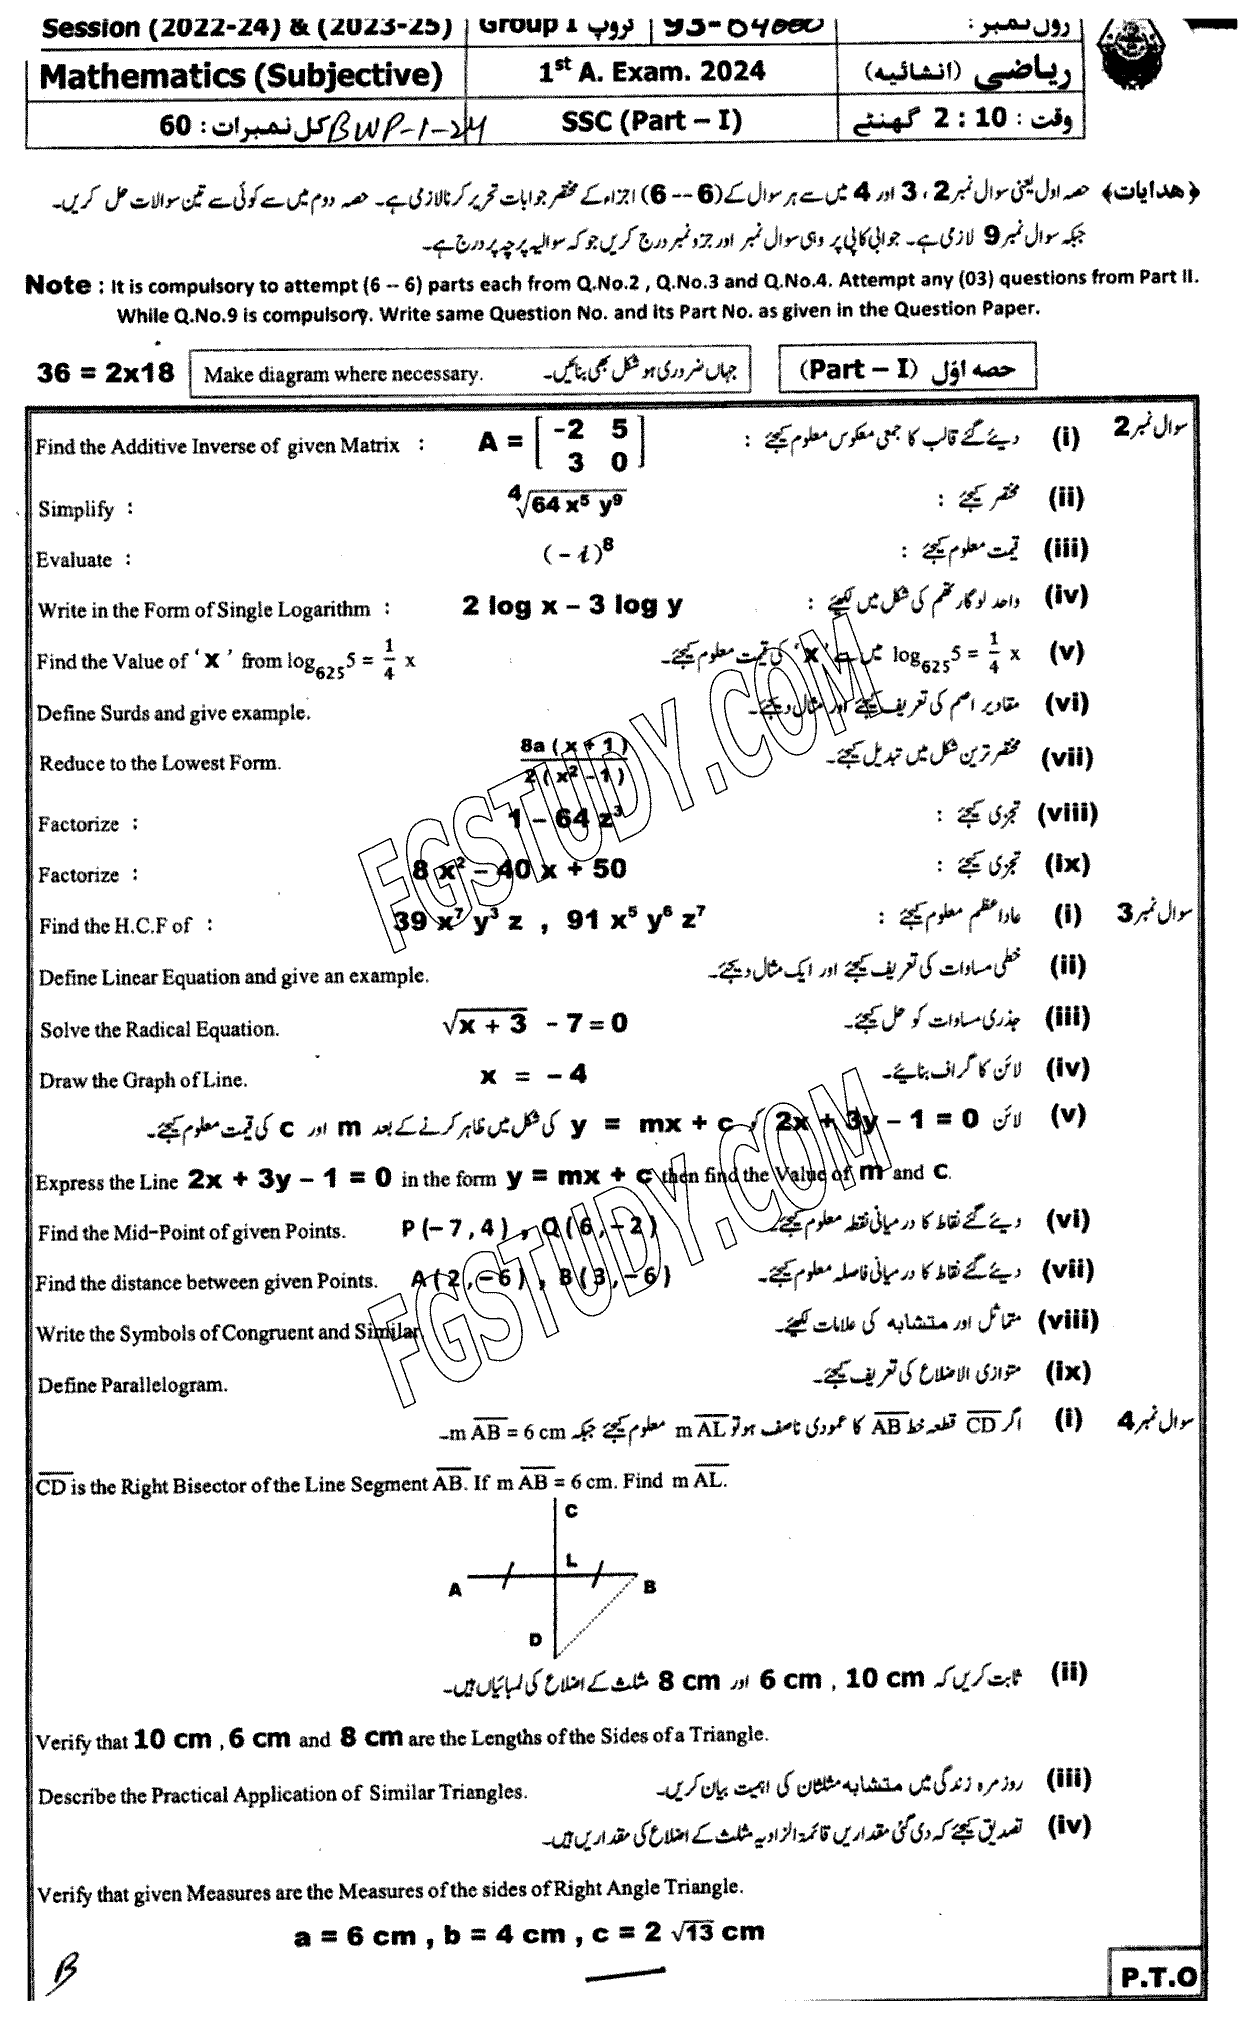 Session (2022-24) & (2023-25) Group I گروپ 93-64000 رول نمبر :
Mathematics (Subjective) 1st A. Exam. 2024 ریاضی (انشائیہ)
کل نمبرات : 60 BWP-1-24 SSC (Part – I) وقت : 2 : 10 گھنٹے
﴿ھدایات﴾ حصہ اول یعنی سوال نمبر 2 ، 3 اور 4 میں سے ہر سوال کے (6 -- 6) اجزاء کے مختصر جوابات تحریر کرنا لازمی ہے۔ حصہ دوم میں سے کوئی سے تین سوالات حل کریں۔
جبکہ سوال نمبر 9 لازمی ہے۔ جوابی کاپی پر وہی سوال نمبر اور جزو نمبر درج کریں جو کہ سوالیہ پرچہ پر درج ہے۔
Note : It is compulsory to attempt (6 -- 6) parts each from Q.No.2 , Q.No.3 and Q.No.4. Attempt any (03) questions from Part II.
While Q.No.9 is compulsory. Write same Question No. and its Part No. as given in the Question Paper.
36 = 2x18 Make diagram where necessary. جہاں ضروری ہو شکل بھی بنائیں۔ (Part – I) حصہ اوّل
سوال نمبر 2 (i) دیئے گئے قالب کا جمعی معکوس معلوم کیجئے : A = [ -2 5 Find the Additive Inverse of given Matrix :
3 0 ]
Simplify : ⁴√64 x⁵ y⁹ مختصر کیجئے : (ii)
Evaluate : (– i)⁸ قیمت معلوم کیجئے : (iii)
Write in the Form of Single Logarithm : 2 log x – 3 log y واحد لوگارتھم کی شکل میں لکھیئے : (iv)
Find the Value of ‘ X ’ from log₆₂₅5 = 1/4 x log₆₂₅5 = 1/4 x میں سے ‘ x ’ کی قیمت معلوم کیجئے۔ (v)
Define Surds and give example. مقادیر اصم کی تعریف کیجئے اور مثال دیجئے۔ (vi)
Reduce to the Lowest Form. 8a ( x + 1 ) / 2 ( x² – 1 ) مختصر ترین شکل میں تبدیل کیجئے۔ (vii)
Factorize : 1 – 64 z³ تجزی کیجئے : (viii)
Factorize : 8 x² – 40 x + 50 تجزی کیجئے : (ix)
Find the H.C.F of : 39 x⁷ y³ z , 91 x⁵ y⁶ z⁷ عاد اعظم معلوم کیجئے : (i) سوال نمبر 3
Define Linear Equation and give an example. خطی مساوات کی تعریف کیجئے اور ایک مثال دیجئے۔ (ii)
Solve the Radical Equation. √x + 3 - 7 = 0 جذری مساوات کو حل کیجئے۔ (iii)
Draw the Graph of Line. x = – 4 لائن کا گراف بنائیے۔ (iv)
(v) لائن 2x + 3y – 1 = 0 کو y = mx + c کی شکل میں ظاہر کرنے کے بعد m اور c کی قیمت معلوم کیجئے۔
Express the Line 2x + 3y – 1 = 0 in the form y = mx + c then find the Value of m and c.
Find the Mid-Point of given Points. P(– 7 , 4) , Q(6 , – 2) دیئے گئے نقاط کا درمیانی نقطہ معلوم کیجئے۔ (vi)
Find the distance between given Points. A( 2 , – 6) , B( 3 , – 6) دیئے گئے نقاط کا درمیانی فاصلہ معلوم کیجئے۔ (vii)
Write the Symbols of Congruent and Similar. متماثل اور متشابہ کی علامات لکھیئے۔ (viii)
Define Parallelogram. متوازی الاضلاع کی تعریف کیجئے۔ (ix)
سوال نمبر 4 (i) اگر CD قطعہ خط AB کا عمودی ناصف ہو تو m AL معلوم کیجئے جبکہ m AB = 6 cm۔
CD is the Right Bisector of the Line Segment AB. If m AB = 6 cm. Find m AL.
C
L
A B
D
(ii) ثابت کریں کہ 10 cm , 6 cm اور 8 cm مثلث کے اضلاع کی لمبائیاں ہیں۔
Verify that 10 cm , 6 cm and 8 cm are the Lengths of the Sides of a Triangle.
Describe the Practical Application of Similar Triangles. روزمرہ زندگی میں متشابہ مثلثان کی اہمیت بیان کریں۔ (iii)
(iv) تصدیق کیجئے کہ دی گئی مقداریں قائمۃ الزاویہ مثلث کے اضلاع کی مقداریں ہیں۔
Verify that given Measures are the Measures of the sides of Right Angle Triangle.
a = 6 cm , b = 4 cm , c = 2 √13 cm
B
P.T.O
FGSTUDY.COM
FGSTUDY.COM